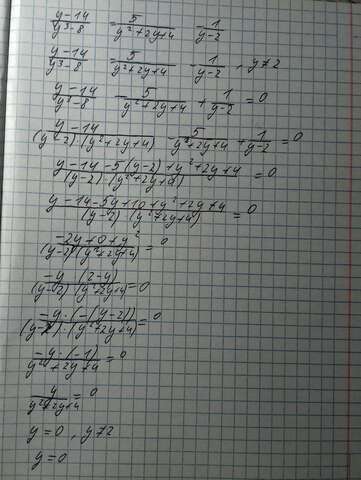 (y-14)/(y³-8) = 5/(y²+2y+4) - 1/(y-2)
(y-14)/(y³-8) = 5/(y²+2y+4) - 1/(y-2) , y≠2
(y-14)/(y³-8) - 5/(y²+2y+4) + 1/(y-2) = 0
(y-14)/((y-2)·(y²+2y+4)) - 5/(y²+2y+4) + 1/(y-2) = 0
(y-14-5(y-2)+y²+2y+4)/((y-2)·(y²+2y+4)) = 0
(y-14-5y+10+y²+2y+4)/((y-2)·(y²+2y+4)) = 0
(-2y+0+y²)/((y-2)·(y²+2y+4)) = 0
(-y·(2-y))/((y-2)·(y²+2y+4)) = 0
(-y·(-(y-2)))/((y-2)·(y²+2y+4)) = 0
(-y·(-1))/(y²+2y+4) = 0
y/(y²+2y+4) = 0
y=0 , y≠2
y=0